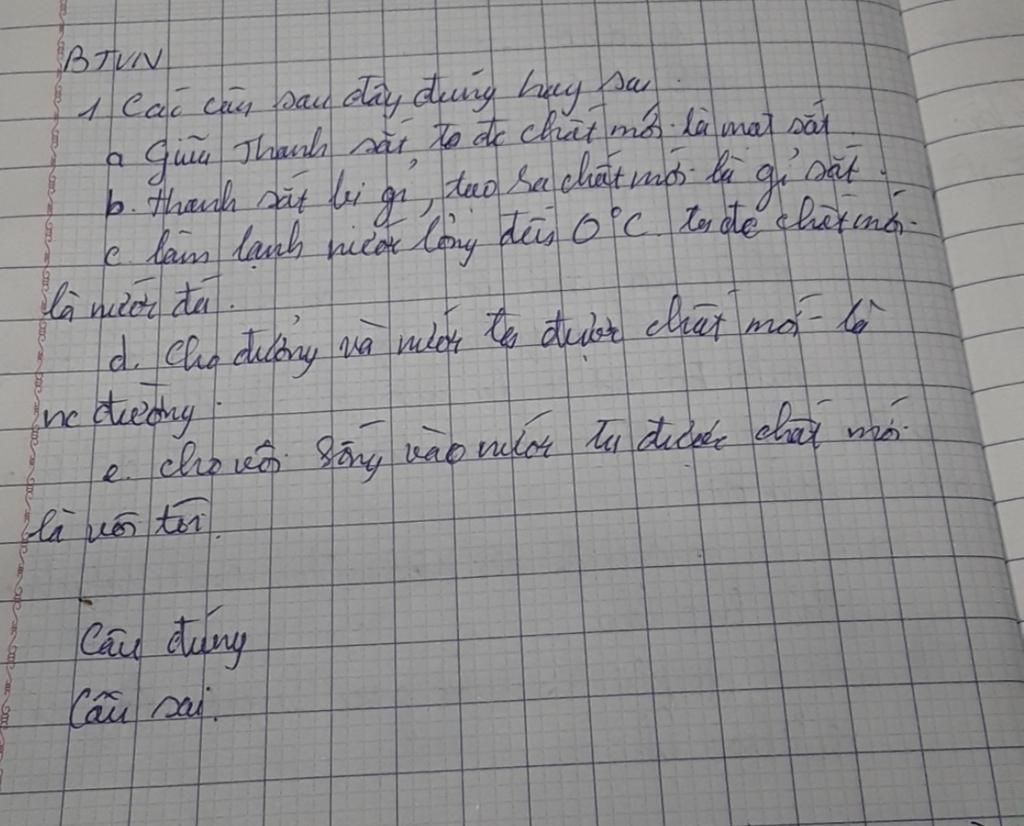 BTVN
1 Các câu sau đây đúng hay sai.
a Giũa thanh sắt, ta đc chất mới là mạt sắt
b. thanh sắt bị gỉ, tạo ra chất mới là gỉ sắt.
c. làm lạnh nước lỏng đến 0°C ta đc chất mới
là nước đá.
d. cho đường và nước ta được chất mới là
nc đường.
e. cho vôi sống vào nước ta được chất mới
là vôi tôi.
Câu đúng
Câu sai.